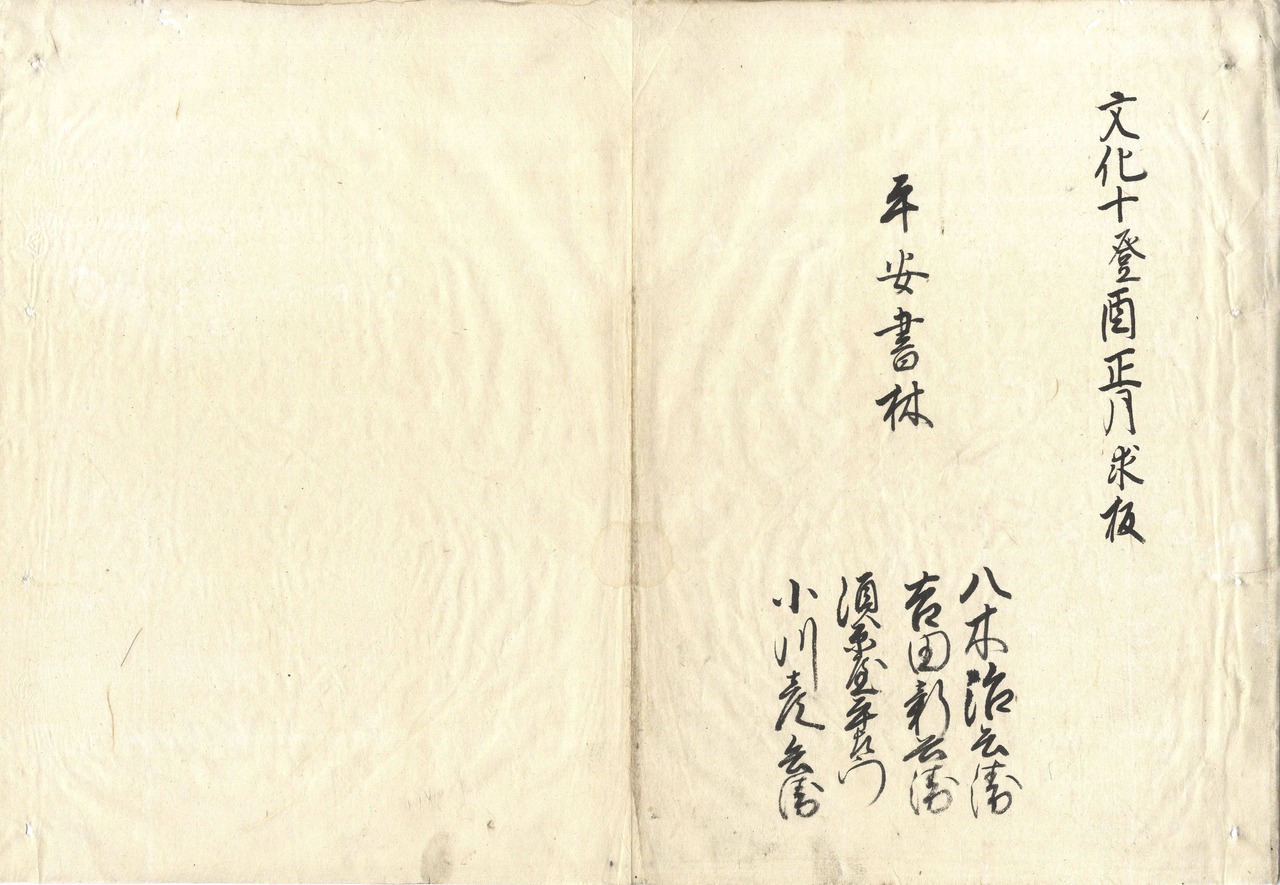 文化十登酉正月求板
平安書林
八木治兵衛
吉田新兵衛
須原屋平左衛門
小川彦兵衛